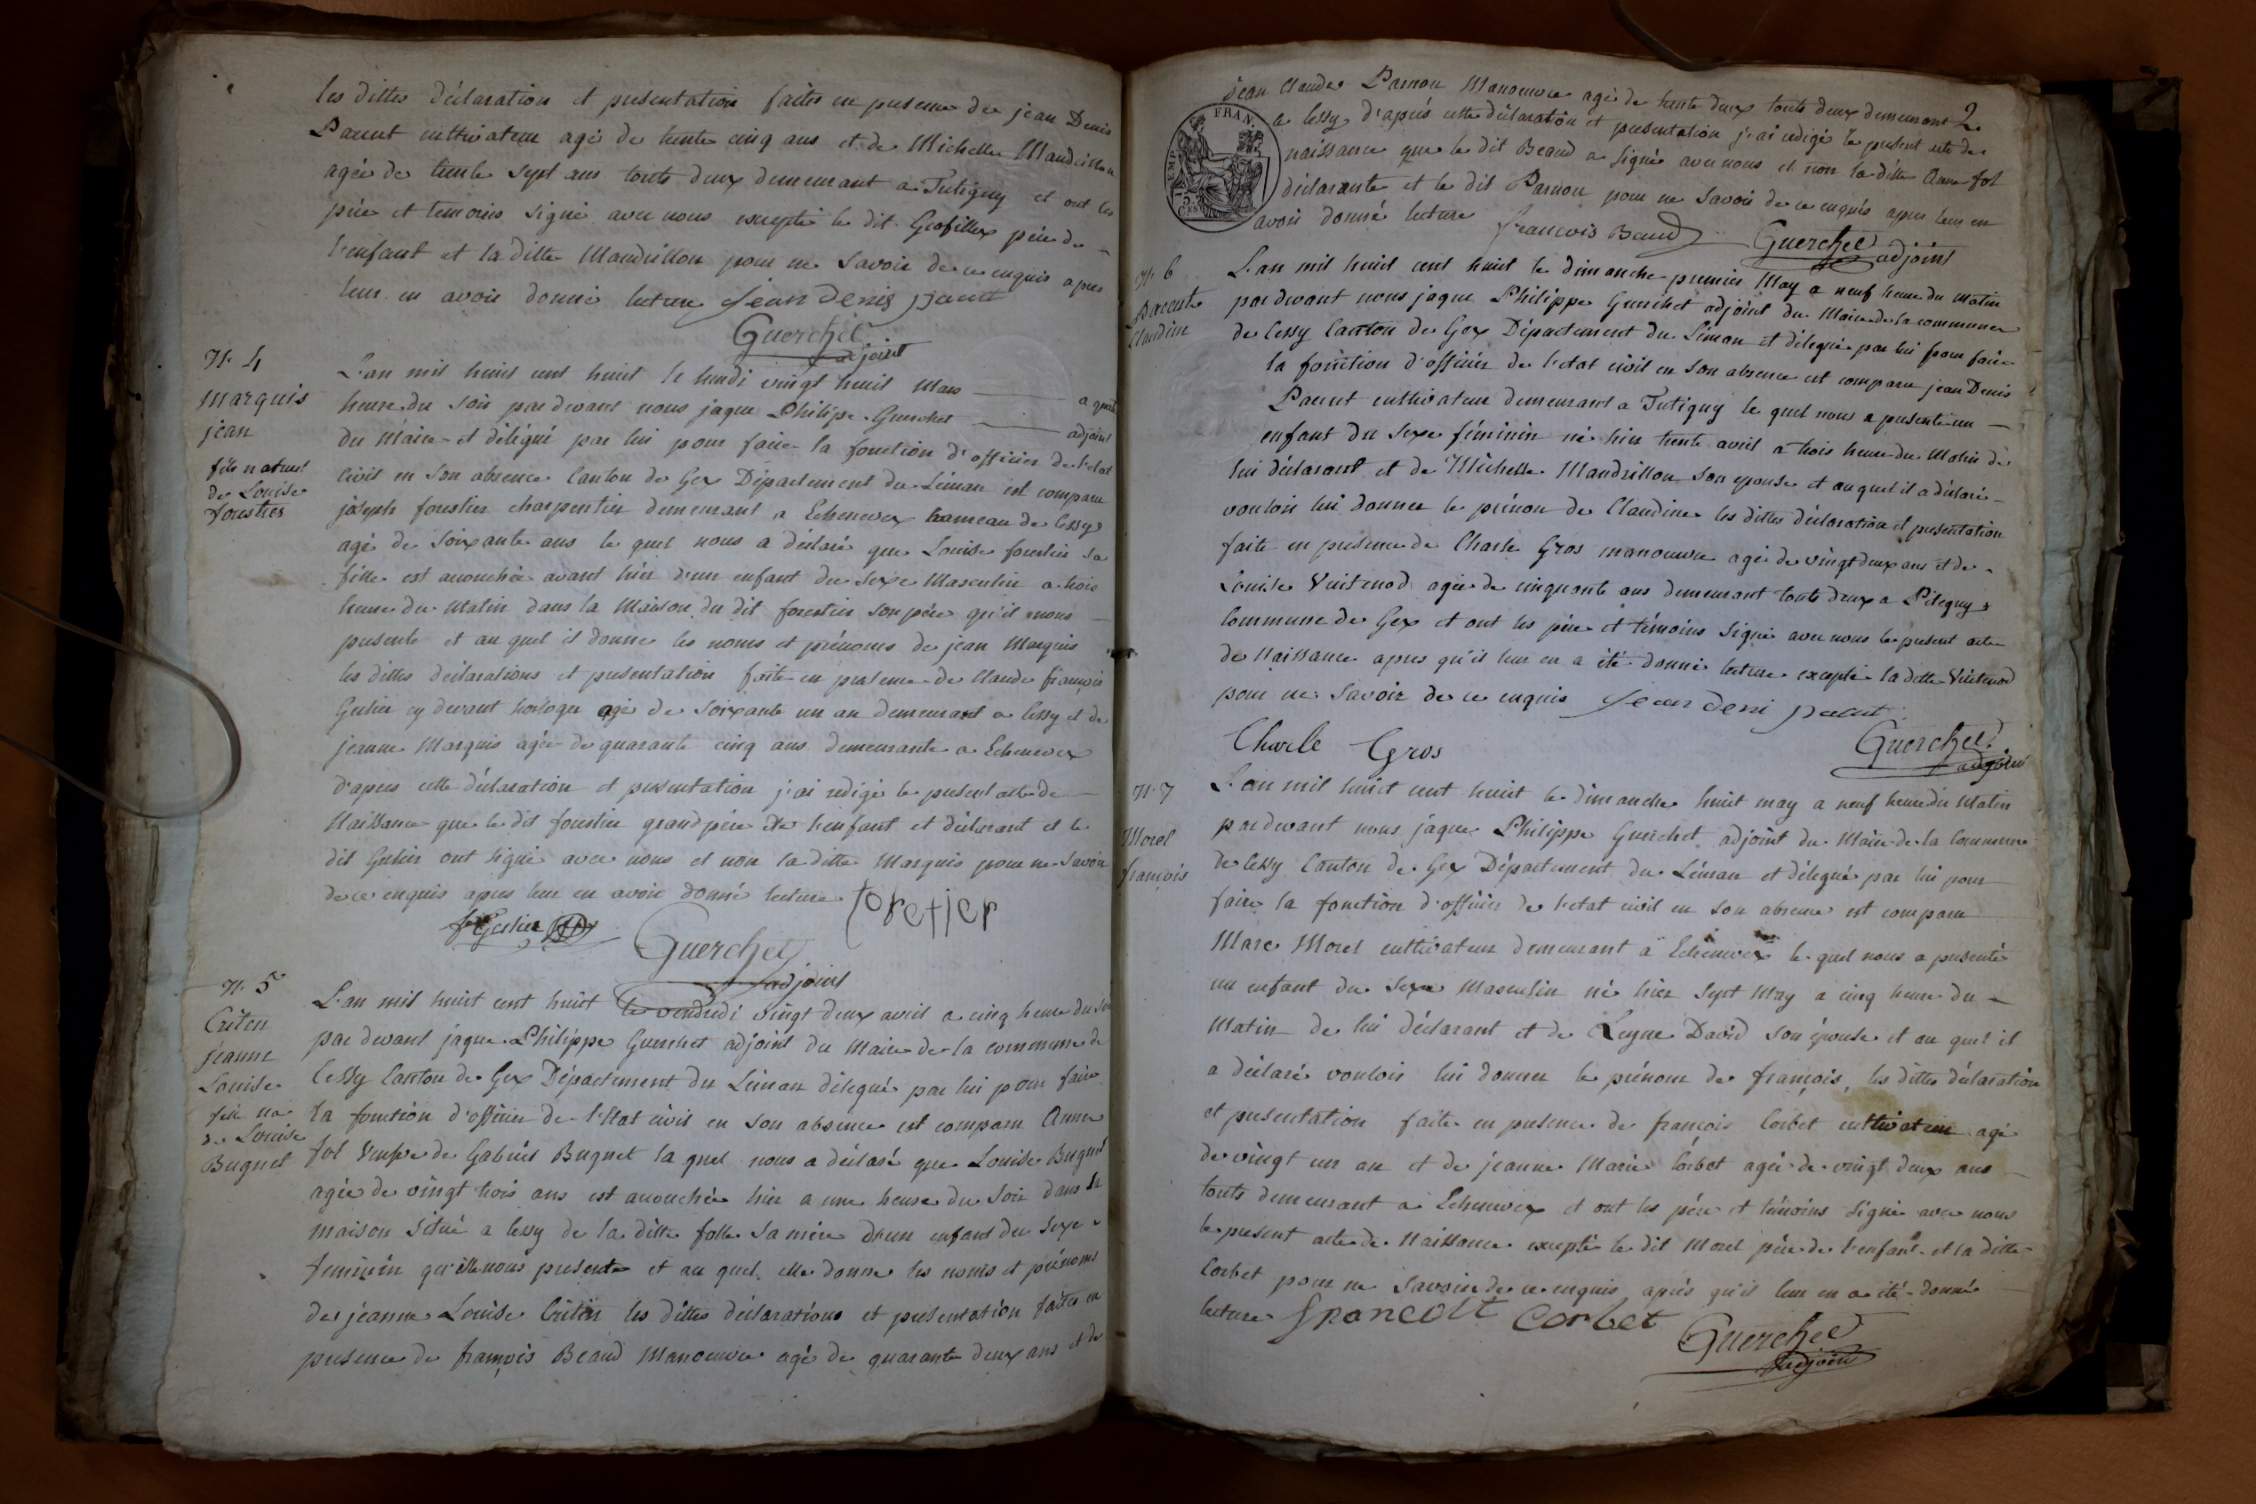 les dittes déclaration et presentation faites en presence de jean Denis
Parent cultivateur agé de trente cinq ans et de Michelle Mandrillon
agée de trente sept ans touts deux demeurant a Tutigny et ont les
père et temoins signé avec nous excepté le dit Grofillex père de
l'enfant et la ditte Mandrillon pour ne savoir de ce enquis apres
leur en avoir donné lecture jean denis parent
Guerchet
adjoint
N. 4
Marquis
jean
fils naturel
de Louise
forestier
L'an mil huit cent huit le lundi vingt huit Mars a quatre
heure du soir par devant nous jaque Philipe Guerchet adjoint
du Maire et délégué par lui pour faire la fonction d'officier de l'etat
Civil en son absence Canton de Gex Département du Léman est comparu
joseph forestier charpentier demeurant a Echenevex hameau de Cessy
agé de soixante ans le quel nous a declaré que Louise forestier sa
fille est acouchée avant hier d'un enfant du sexe Masculin a trois
heure du Matin dans la Maison du dit forestier son père qu'il nous
presente et au quel il donne les noms et prénoms de jean Marquis
les dittes déclarations et presentation faite en presence de Claude françois
Gerlier cy devant horloger agé de soixante un an demeurant a Cessy et de
jeanne Marquis agée de quarante cinq ans demeurante a Echenevex
d'apres cette déclaration et presentation j'ai redigé le present acte de
Naissance que le dit forestier grand père de l'enfant et déclarant et le
dit Gerlier ont signé avec nous et non la ditte Marquis pour ne savoir
de ce enquis apres leur en avoir donné lecture foretier
Guerchet
adjoint
N. 5
Criten
jeanne
Louise
fille na
de Louise
Bugnet
L'an mil huit cent huit le vendredi vingt deux avril a cinq heure du soir
par devant jaque Philippe Guerchet adjoint du Maire de la commune de
Cessy Canton de Gex Département du Léman délegué par lui pour faire
la fonction d'officier de l'Etat civil en son absence est comparu Anne
fol Veuve de Gabriel Bugnet la quel nous a déclaré que Louise Bugnet
agée de vingt trois ans est acouchée hier a une heure du soir dans la
maison situé a Cessy de la ditte folle sa mère d'un enfant du sexe
feminin qu'elle nous presente et au quel elle donne les noms et prénoms
de jeanne Louise Criten les dittes déclarations et presentation faites en
presence de françois Beaud Manoeuvre agé de quarante deux ans et de
2
jean Claude Parnon Manoeuvre agé de trente deux touts deux demeurant
a Cessy d'après cette déclaration et presentation j'ai redigé le present acte de
naissance que le dit Beaud a signé avec nous et non la ditte Anne fol
déclarante et le dit Parnon pour ne savoir de ce enquis apres leur en
avoir donné lecture francois Beaud Guerchet adjoint
FRAN.
N. 6
Parent
Claudine
L'an mil huit cent huit le dimanche premier May a neuf heure du Matin
par devant nous jaque Philippe Guerchet adjoint du Maire de la commune
de Cessy Canton de Gex Département du Léman et délegué par lui pour faire
la fonction d'officier de l'etat civil en son absence est comparu jean Denis
Parent cultivateur demeurant a Tutigny le quel nous a presenté un
enfant du sexe féminin né hier trente avril a trois heure du Matin de
lui déclarant et de Michelle Mandrillon son epouse et au quel il a déclaré
vouloir lui donner le prénom de Claudine les dittes déclaration et presentation
faite en presence de Charle Gros manoeuvre agé de vingt deux ans et de
Louise Vuitenod agée de cinquante ans demeurant touts deux a Pitegny
Commune de Gex et ont les père et témoins signé avec nous le present acte
de Naissance apres qu'il leur en a été donné lecture excepté la ditte Vuitenod
pour ne savoir de ce enquis jean deni parent
Charle Gros
Guerchet
adjoint
N. 7
Morel
françois
L'an mil huit cent huit le dimanche huit may a neuf heure du Matin
par devant nous jaque Philippe Guerchet adjoint du Maire de la Commune
de Cessy Canton de Gex Département du Léman et délegué par lui pour
faire la fonction d'officier de l'etat civil en son absence est comparu
Marc Morel cultivateur demeurant à Echenevex le quel nous a presenté
un enfant du sexe Masculin né hier sept May a cinq heure du
Matin de lui déclarant et de David son épouse et au quel il
a déclaré vouloir lui donner le prénom de françois, les dittes déclaration
et presentation faite en presence de françois Corbet cultivateur agé
de vingt un an et de jeanne Marie Corbet agée de vingt deux ans
touts demeurant a Echenevex et ont les père et témoins signé avec nous
le present acte de Naissance excepté le dit Morel père de l'enfant et la ditte
Corbet pour ne savoir de ce enquis après qu'il leur en a été donné
lecture francoit corbet
Guerchet
adjoint